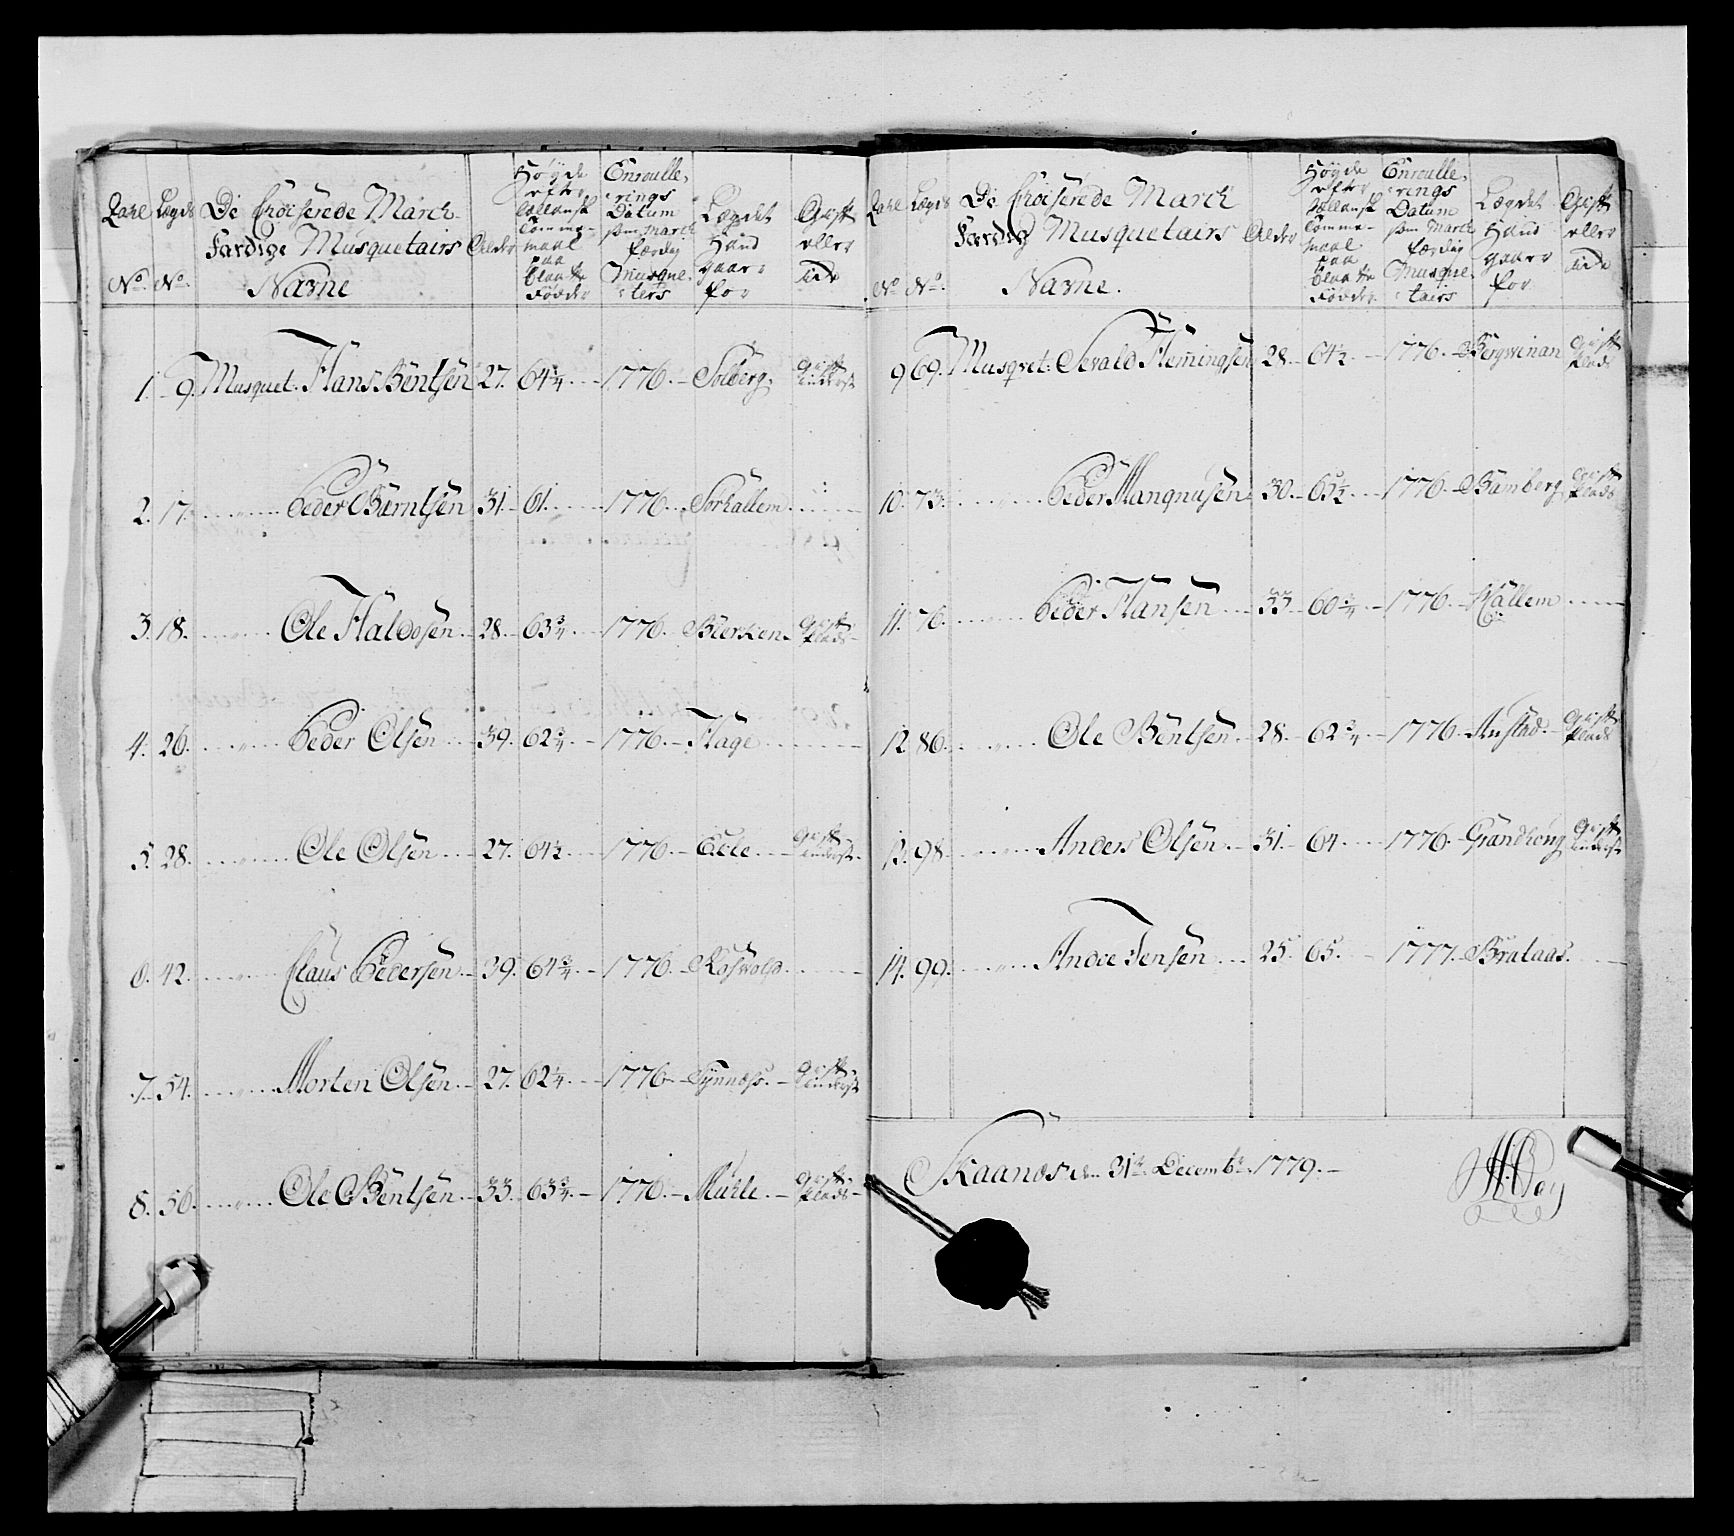 Tahl No.
Lægds No.
De Choiserede March
Færdige Musquetairs
Navne
Alder
Høyde
efter
Sællansk
Tomme-
maal
paa
blaatte
Fødder
Enroulle,
rings
Datum
som March
færdig
Musque,
ters
Lægdet
Hand
gaar
for
Gift
eller
Eide
1. 9. Musquet. Hans Bentsen 27. 64 1/4 1776. Solberg. Gift
2. 17. Peder Bærntsen 31. 61. 1776. Sorhallem
3. 18. Ole Haldosen 28. 63 3/4 1776. Biørken Gift Plads
4. 26. Peder Olsen 39. 62 3/4 1776. Hage
5. 28. Ole Olsen 27. 64 1/2 1776. Eide Gift
6. 42. Claus Pedersen 39. 64 3/4 1776. Rosvold
7. 54. Morten Olsen 27. 62 1/4 1776 Synnæs Gift
8. 56. Ole Bentsen 33. 63 3/4 1776. Muhle Gift Plads
Tahl No.
Lægds No.
De Choiserede March
Færdig Musquetairs
Navne.
Alder
Høyde
efter
Sællansk
Tomme-
maal
paa
blaatte
Fødder
Enroulle,
rings
Datum
som March
færdig
Musque,
tairs
Lægdet
Hand
gaar
for
Gift
eller
Eide
9 69. Musqvet. Sevald Flemingsen 28. 64 1/2 1776. Bergwinan Gift Plads
10. 73. Peder Mangnusen 30. 65 1/2 1776. Bamberg Gift Plads
11. 76. Peder Hansen 33 60 3/4 1776. Hallem
12. 86. Ole Bentsen 28. 62 3/4 1776. Austad. Gift Plads
13. 98. Anders Olsen 31. 64 1776. Grandhong Gift
14. 99. Andre Jensen 25. 65. 1777. Brataas.
Skaanæs den 31te Decembr. 1779.